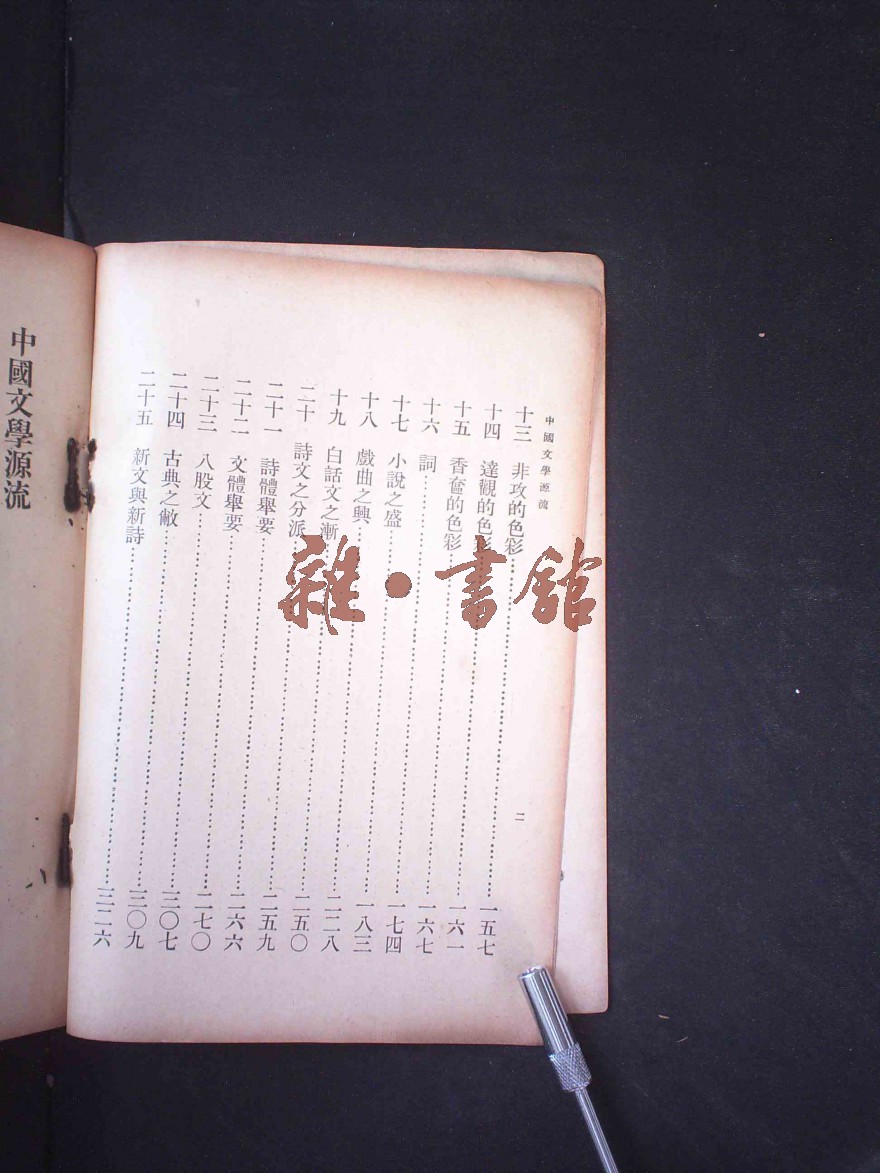 中國文學源流
二
十三 非攻的色彩……一五七
十四 達觀的色彩……一六一
十五 香奩的色彩……一六七
十六 詞……一七四
十七 小說之盛……一八三
十八 戲曲之興……二二八
十九 白話文之漸……二五〇
二十 詩文之分派……二五九
二十一 詩體舉要……二六六
二十二 文體舉要……二七〇
二十三 八股文……三〇七
二十四 古典之敝……三〇九
二十五 新文與新詩……三二六
中國文學源流
雜•書館